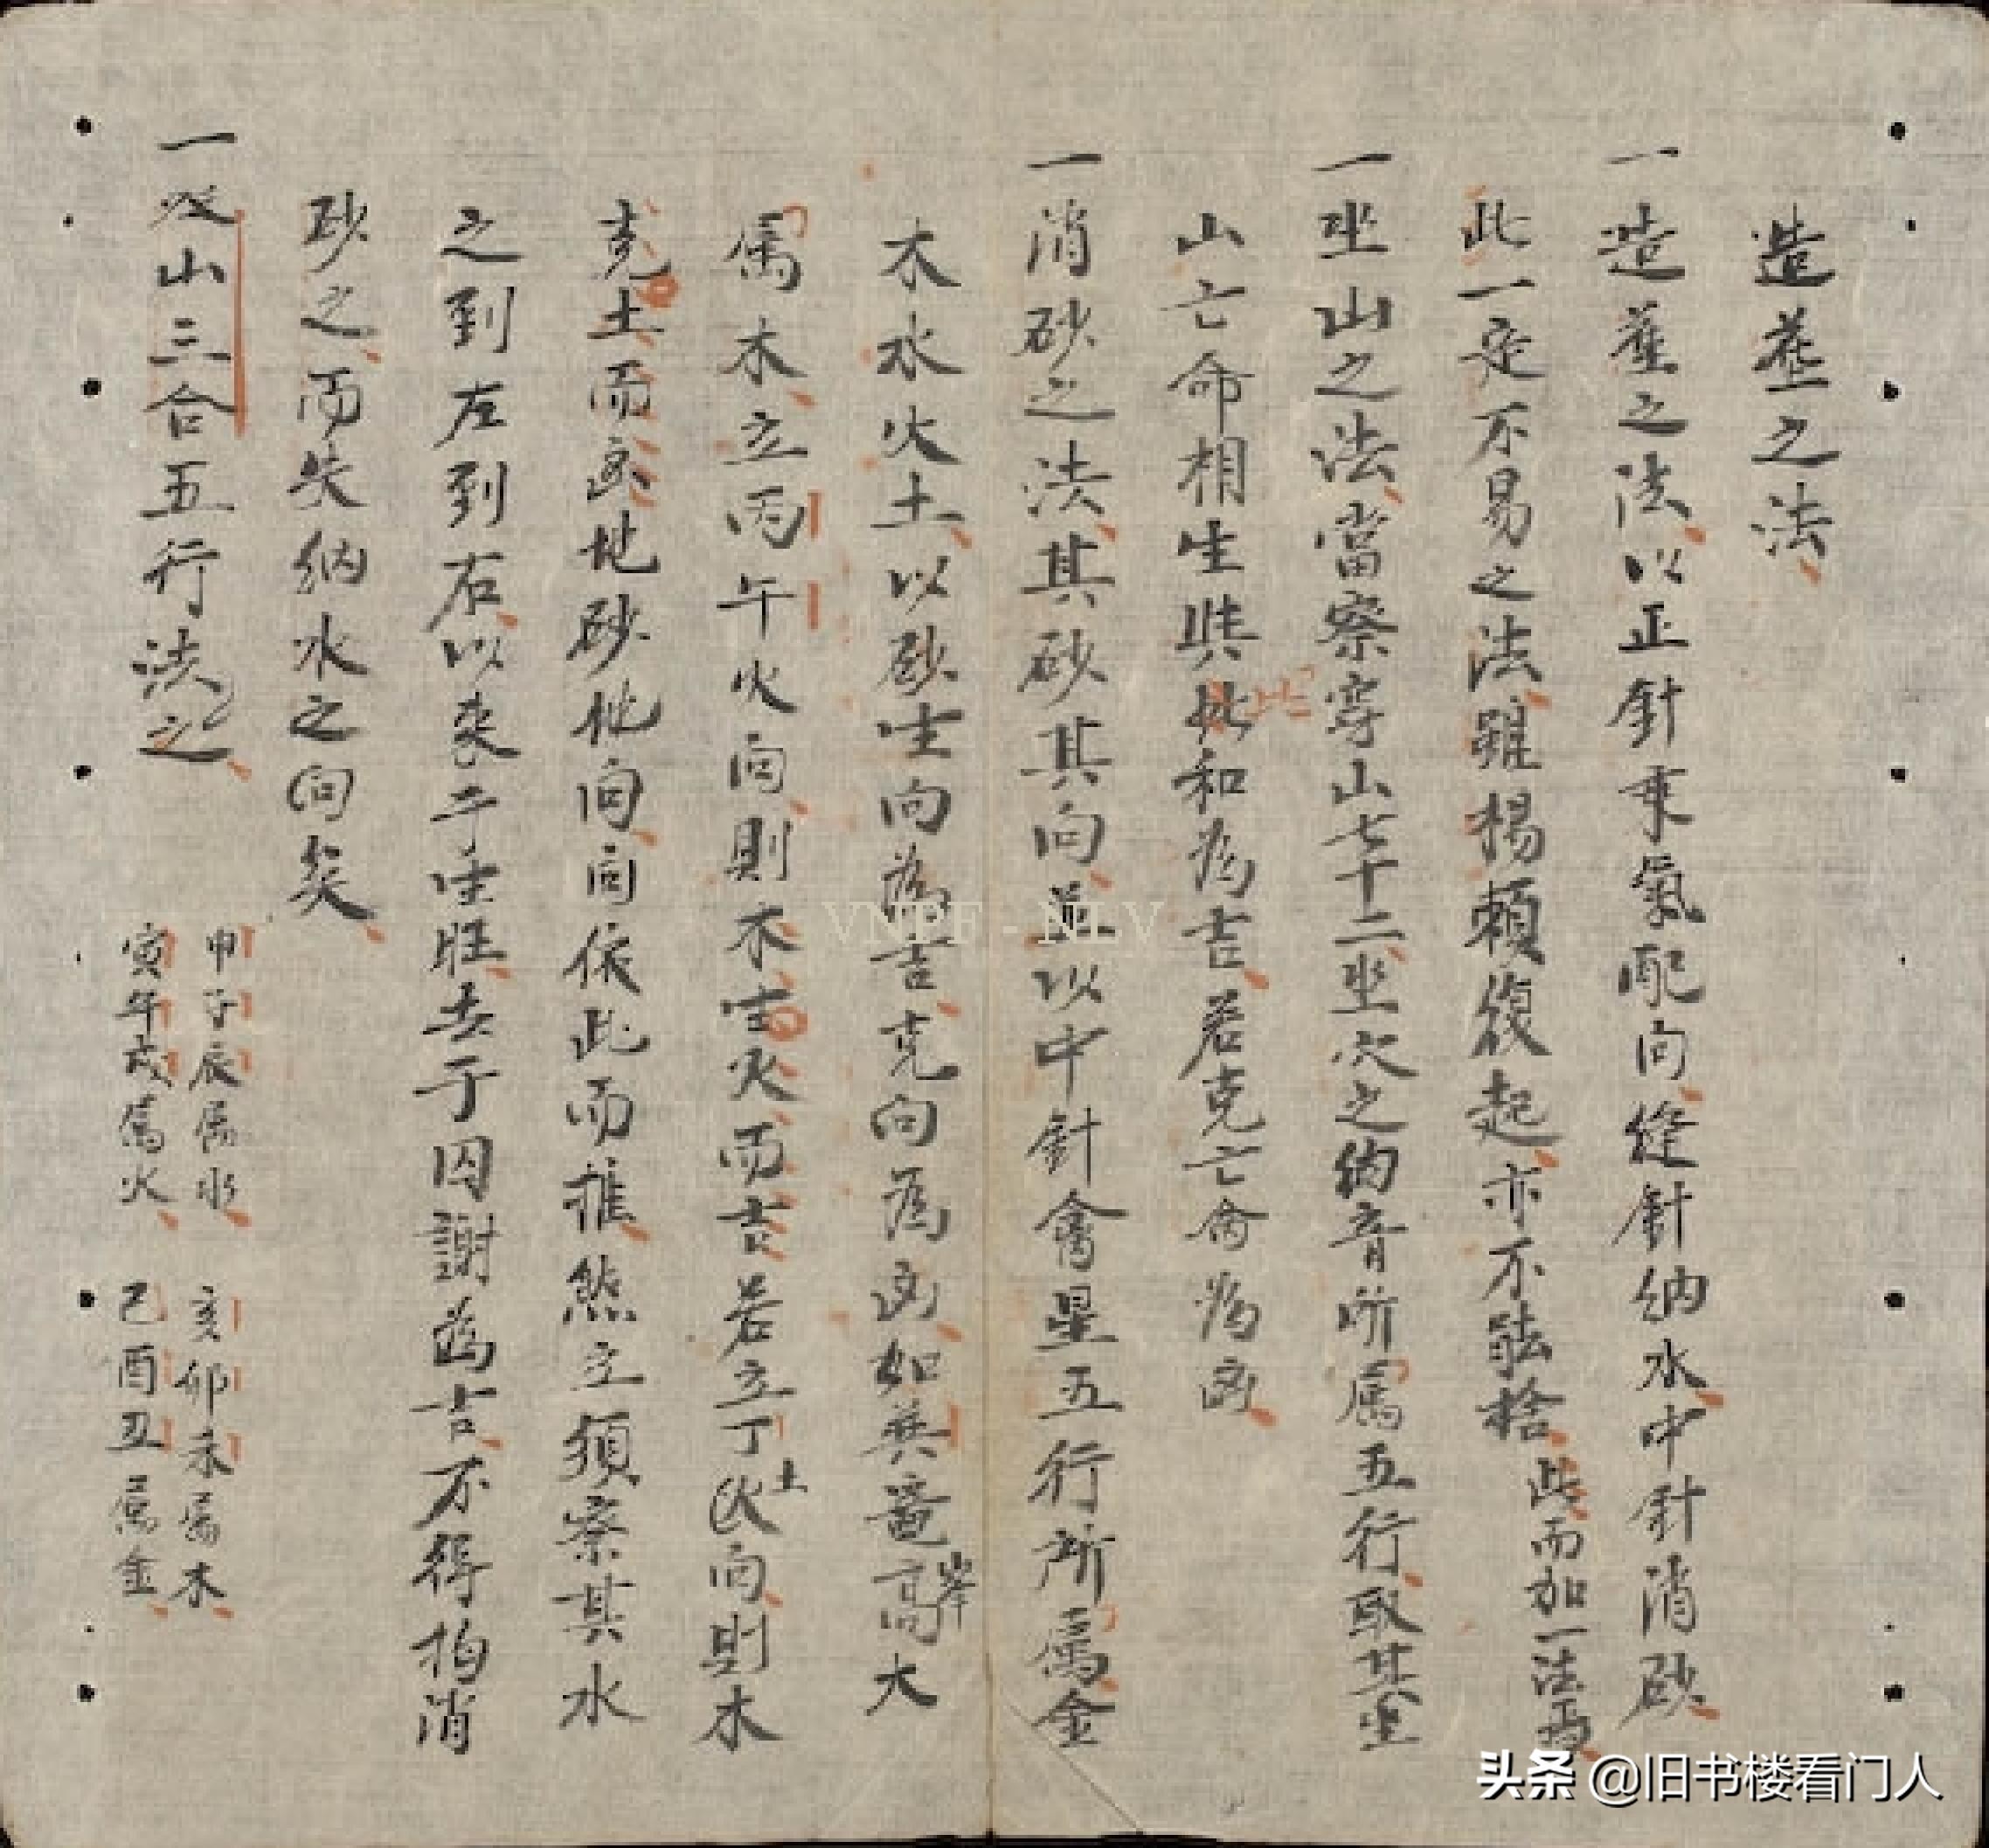 造葬之法
一造葬之法以正針乘氣配向縫針納水中針消砂
此一定不易之法雖楊賴復起亦不能捨此而加一法焉
一坐山之法當察穿山七十二坐穴之納音所属五行取其坐
山亡命相生比和為吉若克亡命為凶
一消砂之法其砂其向並以中針禽星五行所属金
木水火土以砂生向為吉克向為凶如巽竜高大
峯
属木立丙午火向則木生火而吉若立丁土向則木
克土而凶他砂他向向依此而推然立須察其水
之到左到右以来于生旺去于囚謝為吉不得拘消
砂之而失納水之向矣
一双山三合五行法之
申子辰属水
寅午戌属火
亥卯未属木
巳酉丑属金
VNPF - NLV
头条 @旧书楼看门人